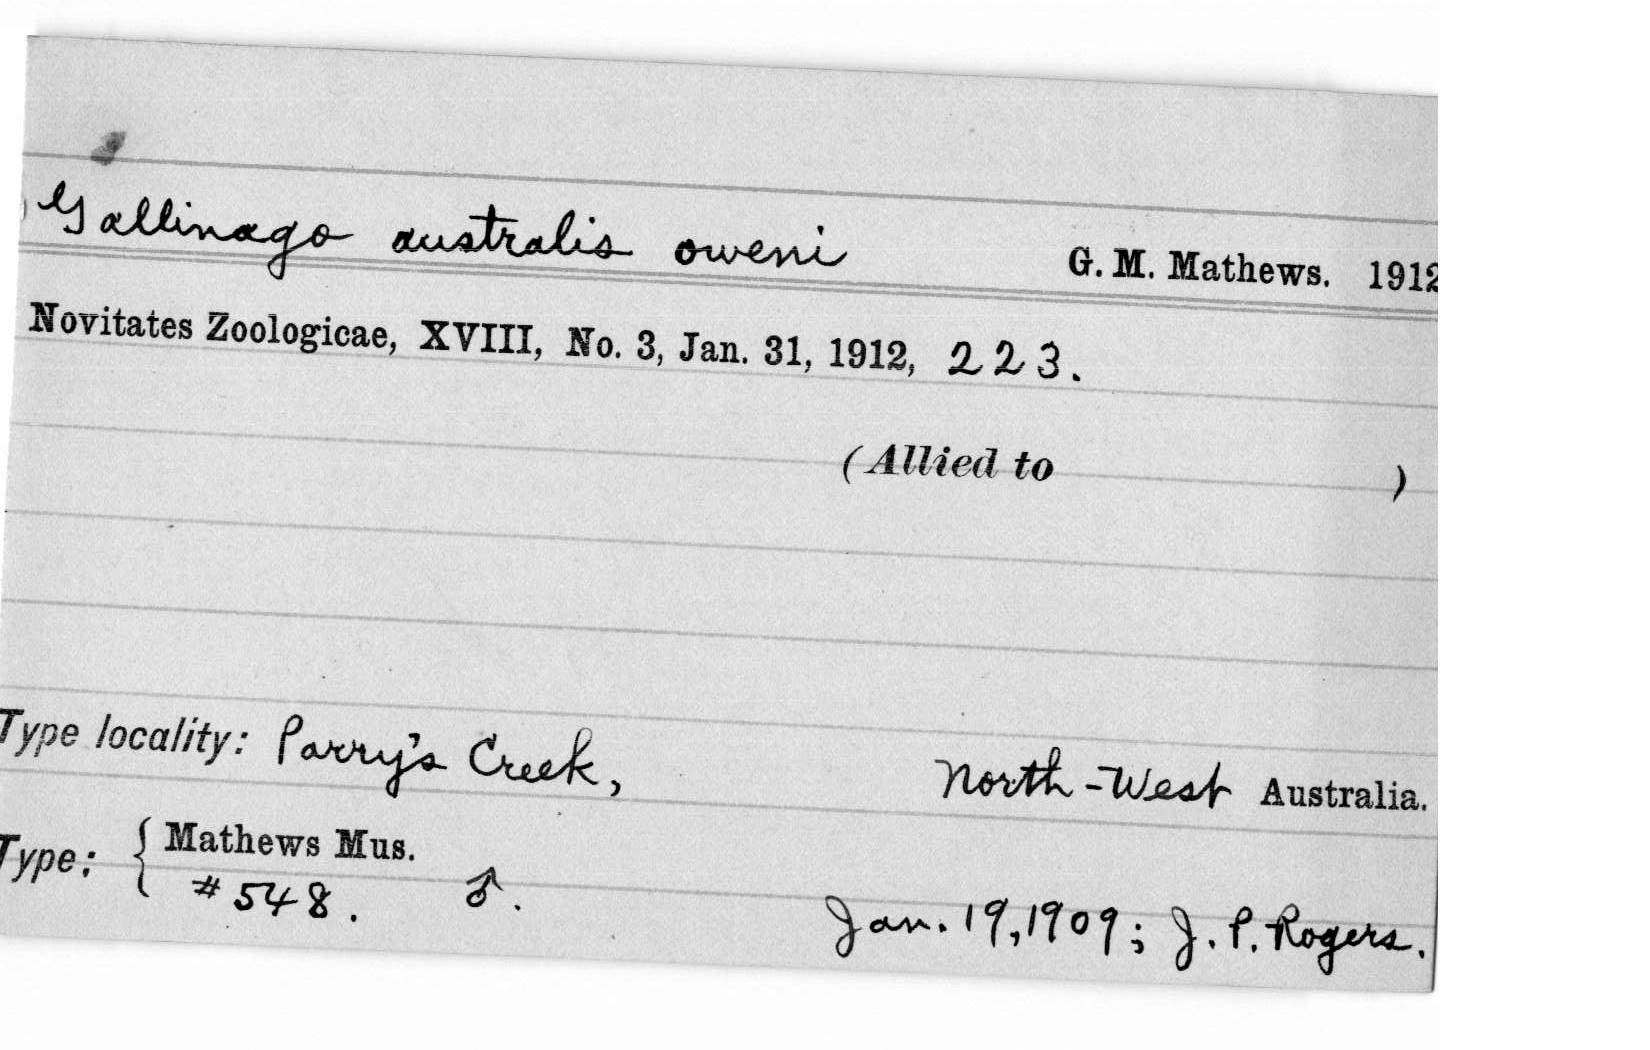 Gallinago australis oweni G. M. Mathews. 1912
Novitates Zoologicae, XVIII, No. 3, Jan. 31, 1912, 223.
(Allied to )
Type locality: Parry's Creek, North-West Australia.
Type: { Mathews Mus.
#548. ♂. Jan. 19, 1909; J. P. Rogers.